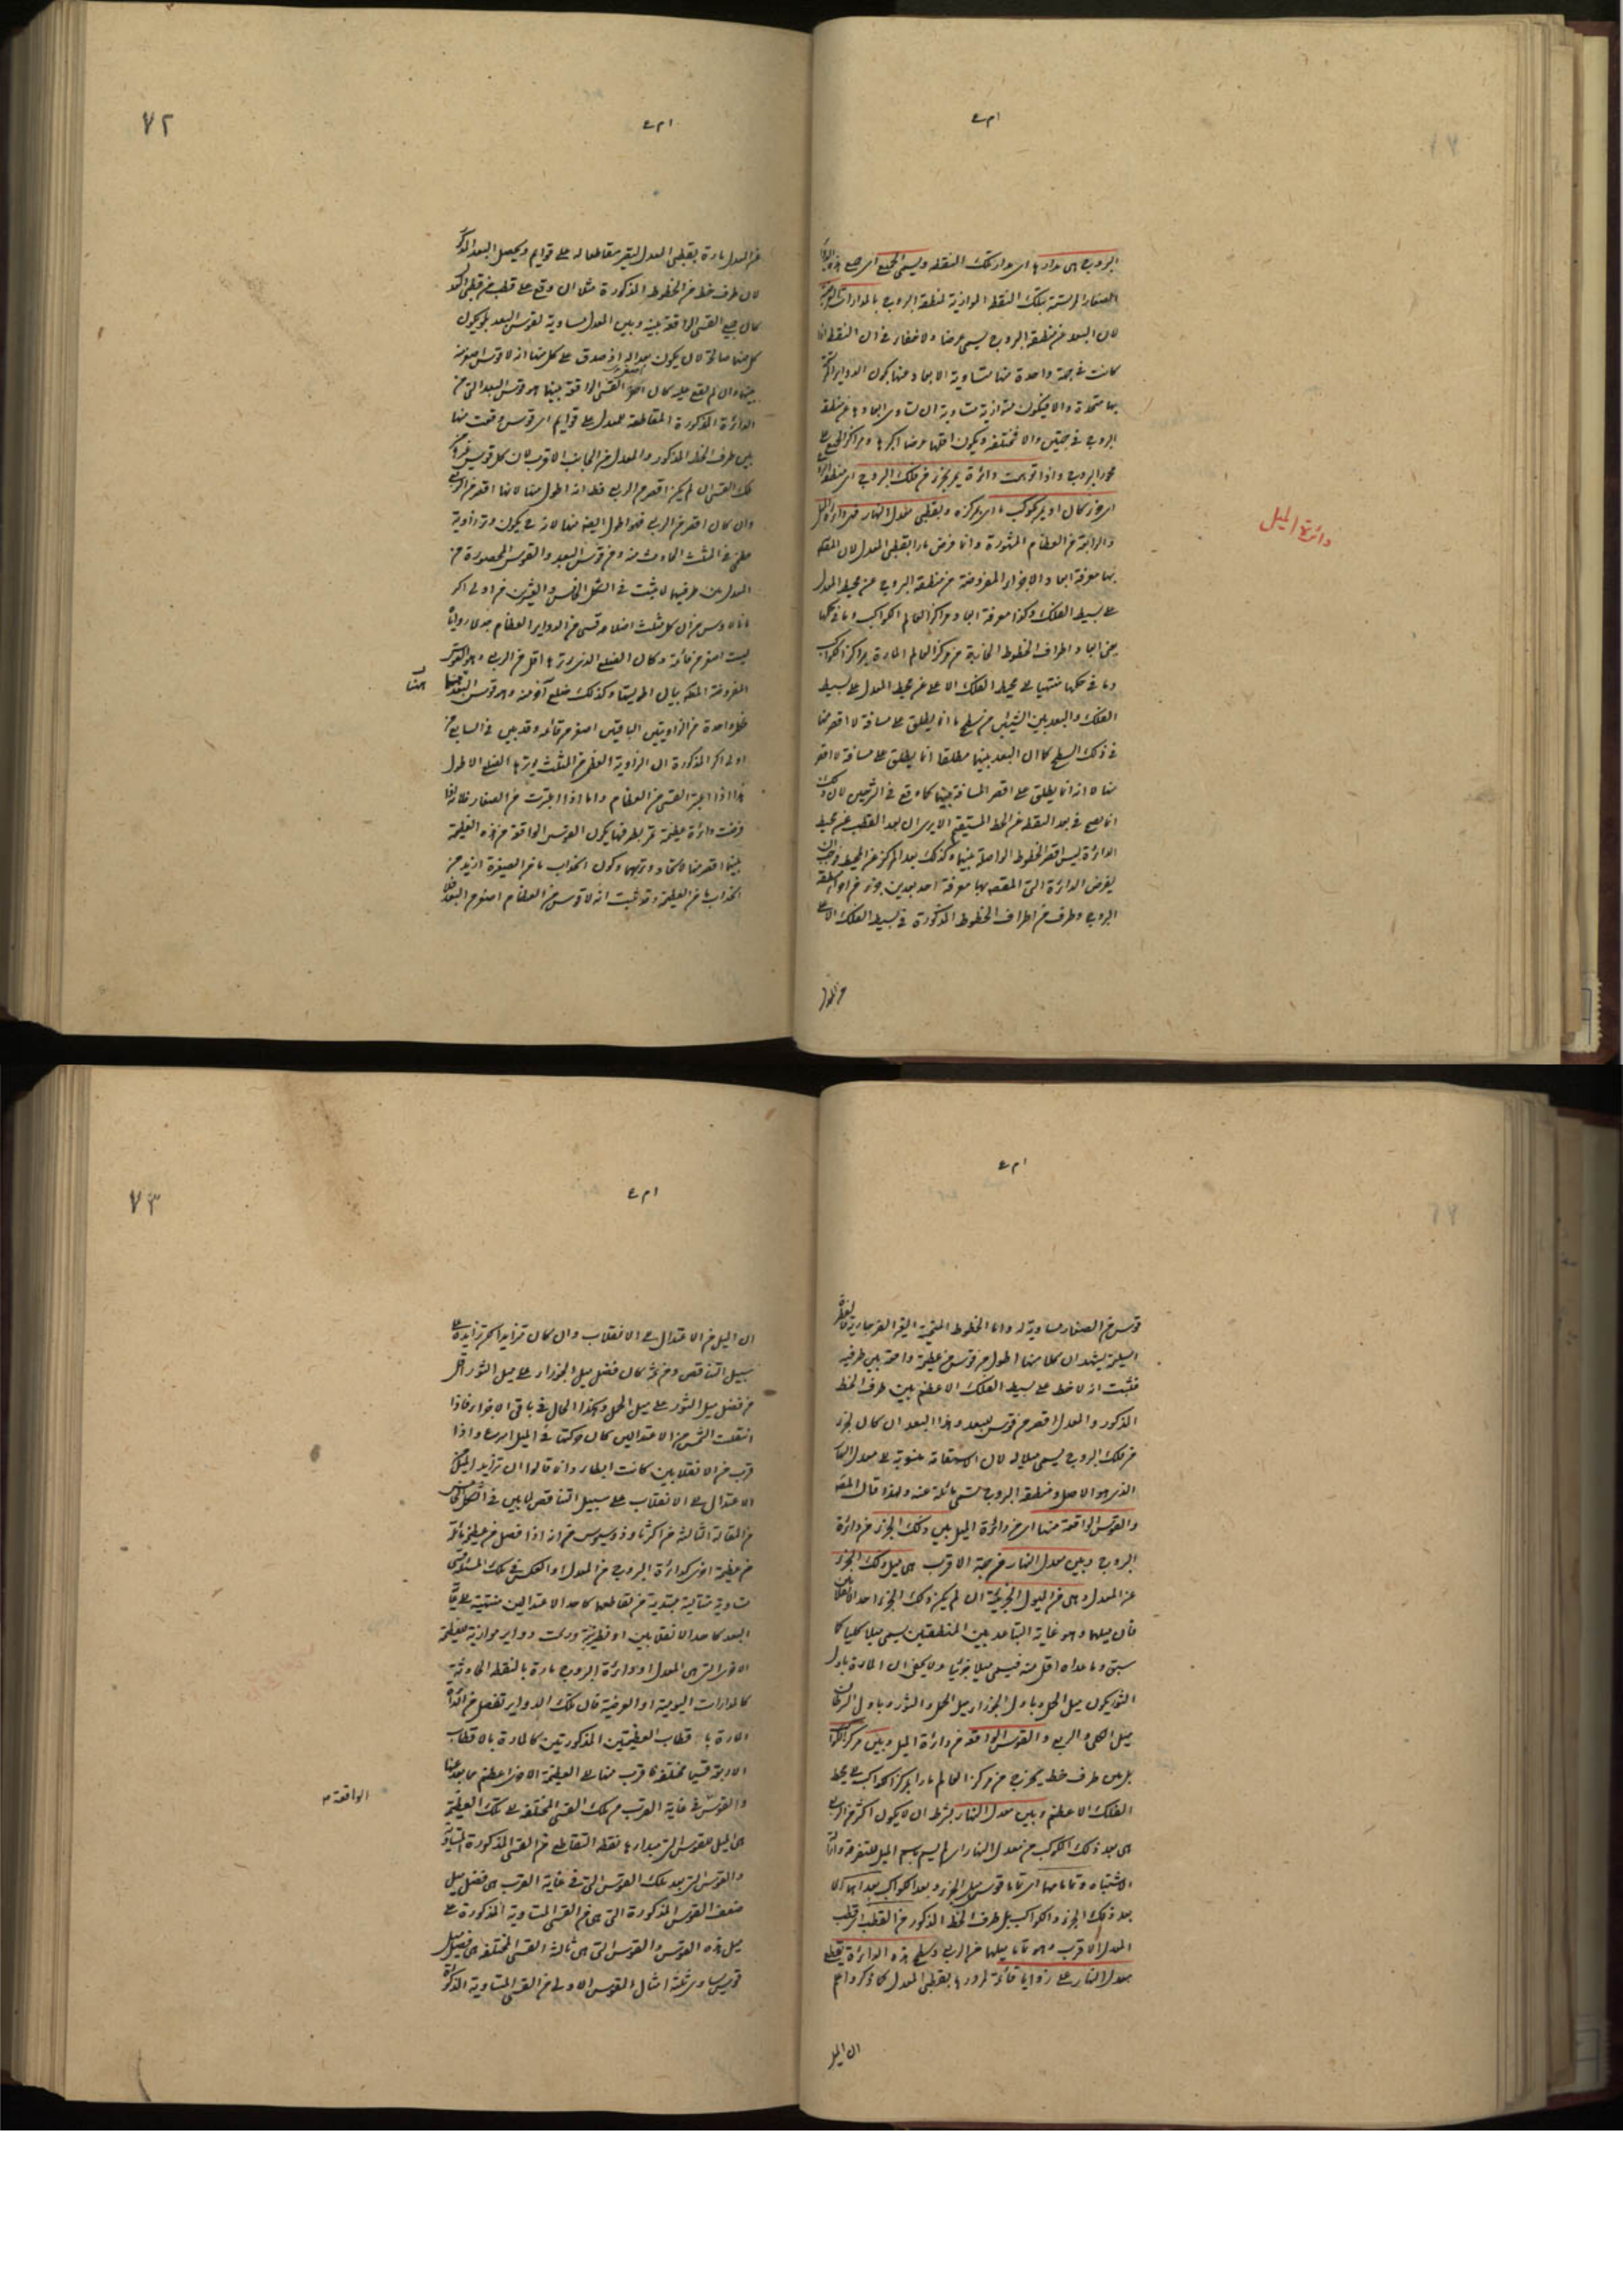 البروج هى مدارها اى مدار تلك النقطة ويسمى الجميع اى جميع هذه الدواير
الصغار المرتسمة بتلك النقط الموازية لمنطقة البروج بالمدارات العرضية
لان البعد عن منطقة البروج يسمى عرضا ولا خفاء فى ان النقط ان
كانت فى جهة واحدة منها متساوية الابعاد عنها يكون الدواير المرتسمة
بها متحدة والا فيكون متوازية متساوية ان تساوى ابعادها عن منطقة
البروج فى جهتين والا فمختلفة ويكون اقلها عرضا اكبرها ومراكز الجميع على
محور البروج واذا توهمت دائرة يمر بجزء من فلك البروج اى منطقة البروج
اى جزء كان او بكوكب اى بمركزه وبقطبى معدل النهار فهى دائرة الميل
دائرة الميل
والرابعة من العظام المشهورة وانما فرض مارا بقطبى المعدل لان المقصود
بها معرفة ابعاد الاجزاء المفروضة من منطقة البروج عن محيط المعدل
على بسيط الفلك وكذا معرفة ابعاد مراكز الكواكب وما فى حكمها
يعنى ابعاد اطراف الخطوط الخارجة من مركز العالم المارة بمراكز الكواكب
وما فى حكمها منتهيا الى محيط الفلك الاعلى عن محيط المعدل على بسيط
الفلك والبعد بين الشيئين من سطح ما انما يطلق على مسافة لا اقصر منها
فى ذلك السطح كما ان البعد بينهما مطلقا انما يطلق على مسافة لا اقصر
منها لا انه انما يطلق على اقصر المسافة بينهما كما وقع فى الشرحين لان ذلك
انما يصح فى بعد النقطة عن الخط المستقيم الا يرى ان بعد القطب عن محيط
الدائرة ليس اقصر الخطوط الواصلة بينهما وكذلك بعد المركز عن المحيط فوجب ان
يفرض الدائرة التى المقصود بها معرفة احد بعدين جزء من اجزاء منطقة
البروج وطرف من اطراف الخطوط المذكورة فى بسيط الفلك الاعلى
٧٢
عن المعدل مارة بقطبى المعدل ليقع مقاطعا له على قوايم ويحصل البعد المذكور
لان طرف خط من الخطوط المذكورة مثلا ان وقع على قطب من قطبى المعدل
كان جميع القسى الواقعة بينه وبين المعدل متساوية لقوس البعد بل يكون
كل منها صالحا لان يكون بعدا له اذ صدق على كل منها انه لا قوس اصغر منه
بينهما وان لم يقع عليه كان اصغر القسى الواقعة بينهما هو قوس البعد التى من
الدائرة المذكورة المقاطعة للمعدل على قوايم اى قوس وقعت منها
بين طرف الخط المذكور والمعدل من الجانب الاقرب لان كل قوس
تلك القسى ان لم يكن اقصر من الربع فظ انه اطول منها لانها اقصر من الربع
وان كان اقصر من الربع فهو اطول ايضا منها لانه يكون وتر زاوية
عظمى فى المثلث الحادث منه ومن قوس البعد والقوس المحصورة من
المعدل بين طرفيهما لما ثبت فى الشكل الخامس والعشرين من اولى اكر
مانالاوس من ان كل مثلث اضلاعه قسى من الدواير العظام احدى زواياه
ليست اصغر من قائمة وكان الضلع الذى يوترها اقل من الربع وهو القوس
المفروضة المطلوب بيان اطوليتها وكذلك ضلع آخر منه وهو قوس البعد
فكل واحدة من الزاويتين الباقيتين اصغر من قائمة وقد بين فى السابع من
اولى اكر المذكورة ان الزاوية العظمى من المثلث يوترها الضلع الاطول
هذا اذا اعتبر القسى من العظام واما اذا اعتبرت من الصغار فلانه اذا
فرضت دائرة عظيمة تمر بطرفيها يكون القوس الواقعة من هذه العظيمة
بينهما اقصر منها لاتحاد وترهما وكون انحداب ما من الصغيرة ازيد من
انحداب ما من العظيمة وقد ثبت انه لا قوس من العظام اصغر من البعد فلا
قوس من الصغار مساوية له واما الخطوط المنحنية الغير الفرجارية فالفطرة
السليمة يشهد ان كلا منها اطول من قوس من عظيمة واصلة بين طرفيه
فثبت انه لا خط على بسيط الفلك الاعظم بين طرف الخط
المذكور والمعدل اقصر من قوس البعد وهذا البعد ان كان لجزء
من فلك البروج يسمى ميلا له لان الاستقامة منسوبة الى معدل النهار
الذى هو الاصل ومنطقة البروج تسمى مائلة عنه ولهذا قال المصنف
والقوس الواقعة منها اى من دائرة الميل بين ذلك الجزء من دائرة
البروج وبين معدل النهار من جهة الاقرب هى ميل ذلك الجزء
عن المعدل وهى من الميول الجزئية ان لم يكن ذلك الجزء احد الانقلابين
فان ميلهما وهو غاية التباعد بين المنطقتين يسمى ميلا كليا كما
سبق وما عداه اقل منه فيسمى ميلا جزئيا ولا يخفى ان المارة باول
الثور يكون ميل الحمل وباول الجوزاء ميل الحمل والثور وباول السرطان
ميل الكلى والربع والقوس الواقعة من دائرة الميل وبين مركز الكوكب
بل بين طرف خط يخرج من مركز العالم مارا بمركز الكوكب الى محيط
الفلك الاعظم وبين معدل النهار بشرط ان لا يكون اكثر من الربع
هى بعد ذلك الكوكب عن معدل النهار اى لم يسم باسم الميل للتفرقة وازالة
الاشتباه وتماماهما اى تماما قوسى ميل الجزء وبعد الكوكب بعداهما اى
بعد ذلك الجزء والكوكب بل طرف الخط المذكور من القطب اى قطب
المعدل الاقرب وهو تمام ميلهما عن الربع وسطح هذه الدائرة يقطع
معدل النهار على زوايا قائمة لمرورها بقطبى المعدل كما ذكر واعلم
ان الميل
٧٣
ان الميل من الاعتدال الى الانقلاب وان كان تزايدا لكن تزايده على
سبيل التناقص ومن ثم كان فضل ميل الجوزاء على ميل الثور اقل
من فضل ميل الثور على ميل الحمل وهكذا الحال فى باقى الاجزاء فاذا
انتقلت الشمس من الاعتدالين كان حركتها فى الميل اسرع واذا
قرب من الانقلابين كانت ابطاء وانما قالوا ان تزايد الميل من
الاعتدال الى الانقلاب على سبيل التناقص لما بين فى الشكل الخامس
من المقالة الثالثة من اكر ثاوذوسيوس من انه اذا فصل من عظيمة مائلة
عن عظيمة اخرى كدائرة البروج من المعدل او العكس فى تلك المسئلة قسى
متساوية متتالية مبتدية من تقاطعهما كاحد الاعتدالين منتهية الى غاية
البعد كاحد الانقلابين او نظيرتيه ورسمت دواير موازية للعظيمة
الاخرى التى هى المعدل او دائرة البروج مارة بالنقط الحادثة
كالمدارات اليومية او العرضية فان تلك الدواير تفصل من الدائرة
المارة باقطاب العظيمتين المذكورتين كالمارة بالاقطاب
الاربعة قسيا مختلفة ما قرب منها الى العظيمة الاخرى اعظم مما بعد عنها
والقوس الواقعة فى غاية القرب من تلك القسى المختلفة الى تلك العظيمة
هى الميل للقوس التى مبداءها نقطة التقاطع من القسى المذكورة المتساوية
والقوس التى بعد تلك القوس التى فى غاية القرب هى فضل ميل
ضعف القوس المذكورة التى هى من القسى المتساوية المذكورة على
ميل هذه القوس والقوس التى هى ثالثة القسى المختلفة هى فضل ميل
قوس يساوى ثلثة امثال القوس الاولى من القسى المتساوية المذكورة